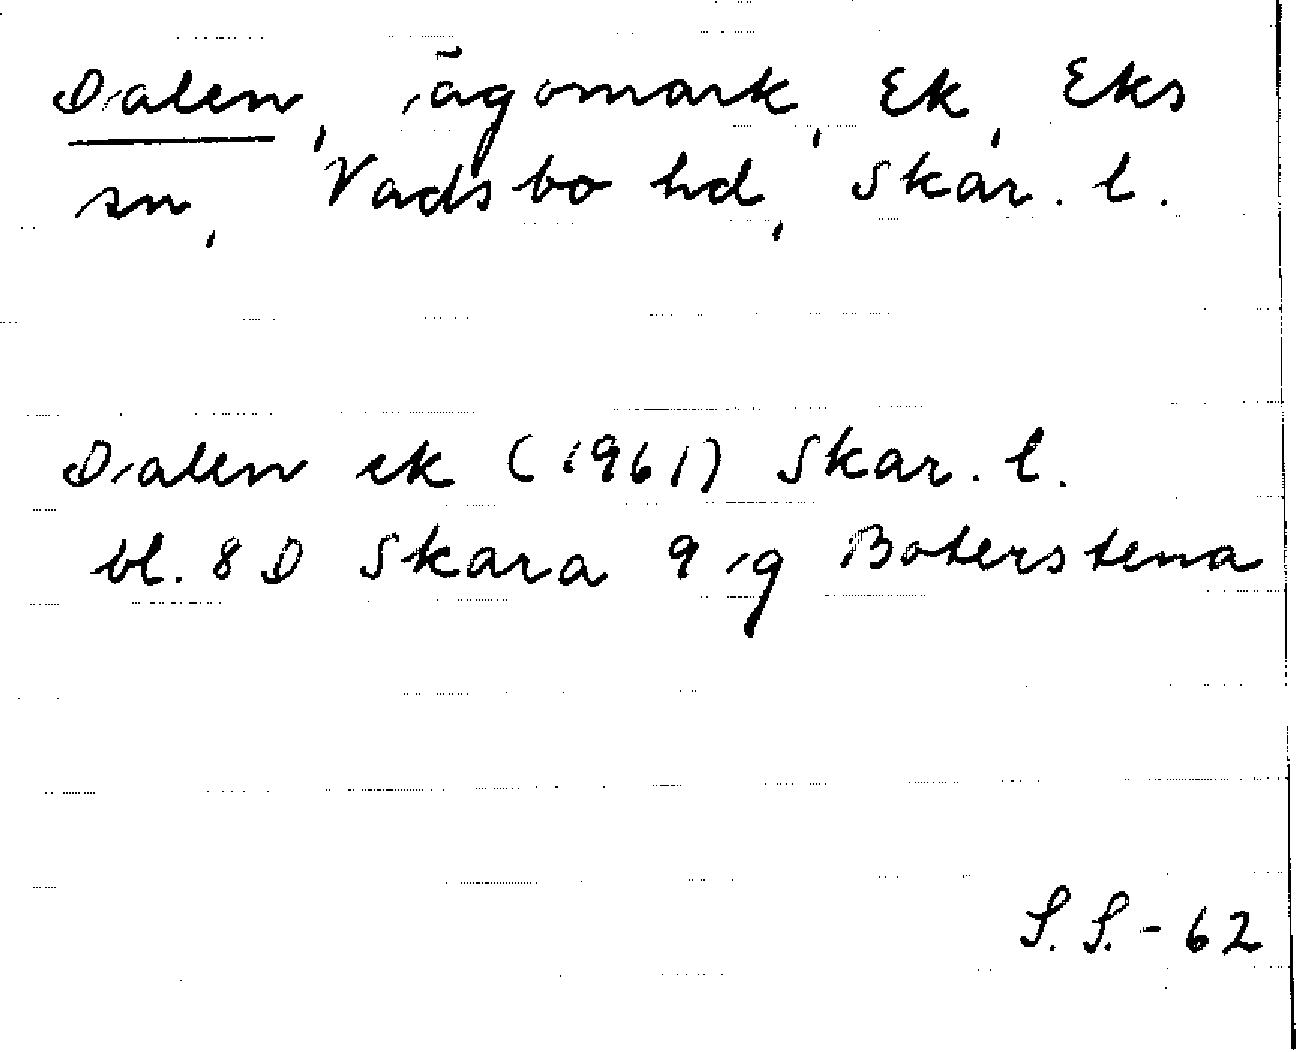 Dalen, ägomark, Ek, Eks
sn, Vadsbo hd, Skar. l.
Dalen ek (1961) Skar. l.
bl. 8 D Skara 9 g Boterstena
S. S. - 62